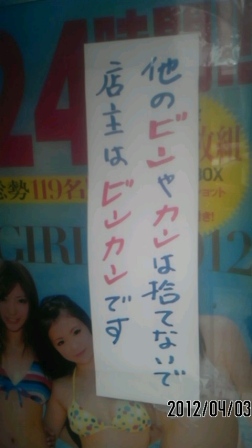 他のビンやカンは捨てないで
店主はビンカンです
24時間
枚組
BOX
総勢119名
GIRL
2012
2012/04/03